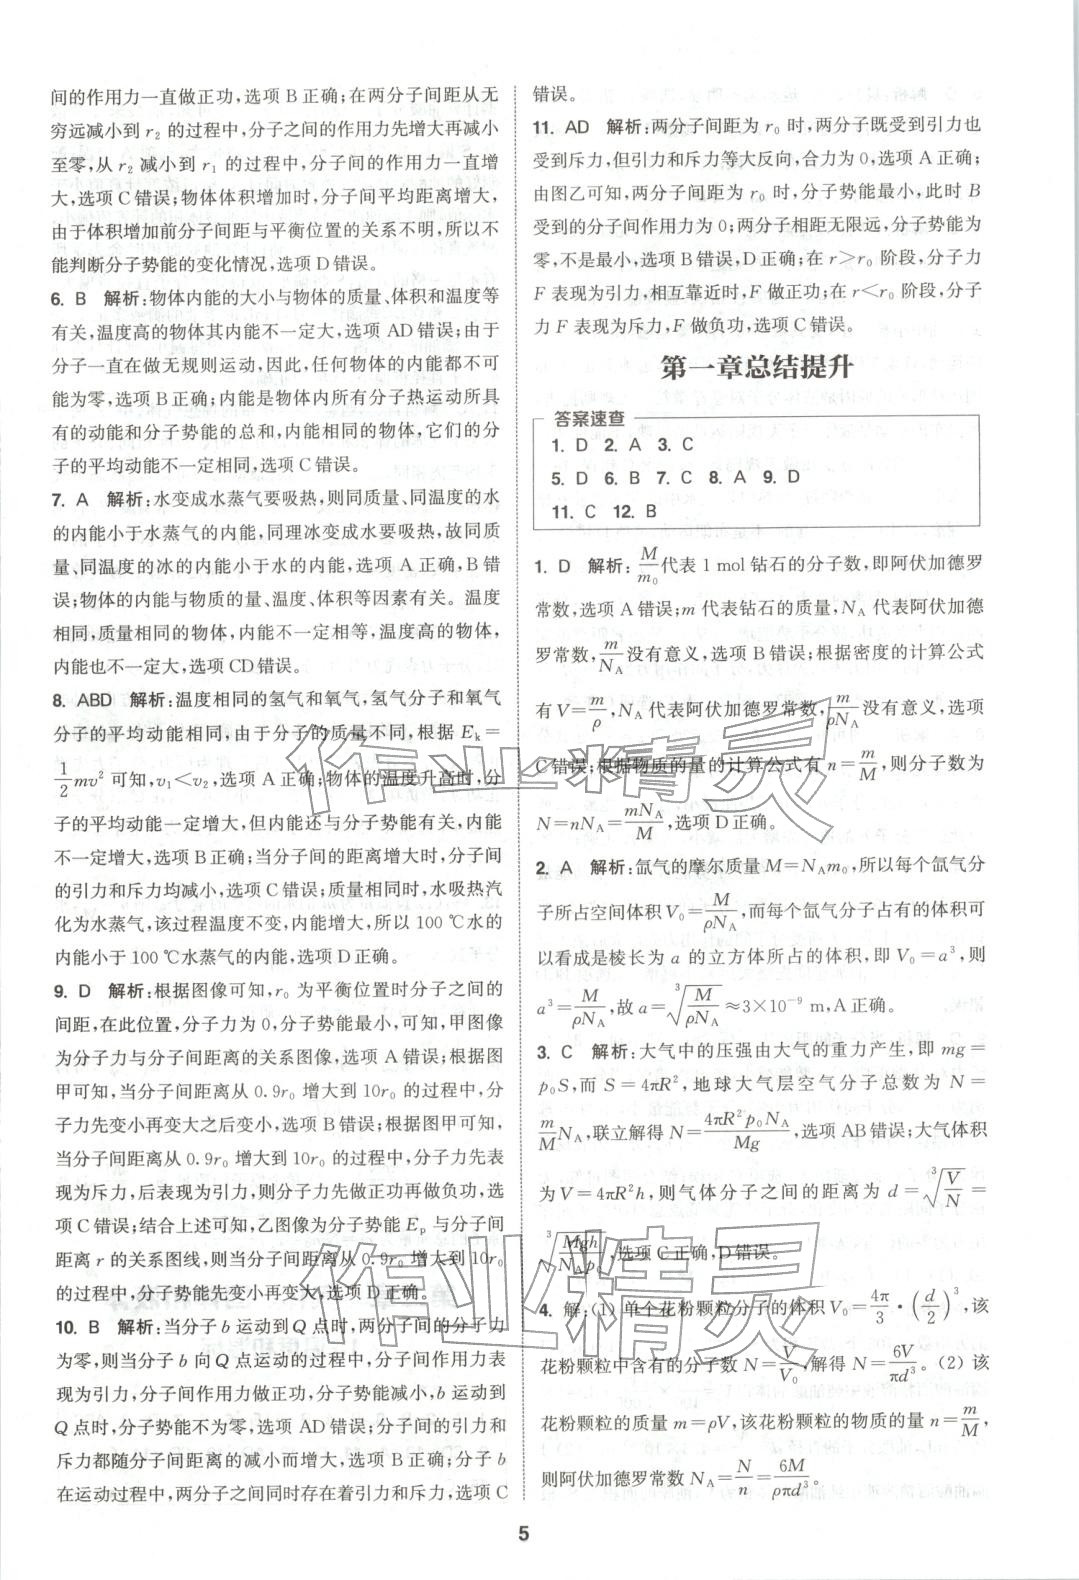 间的作用力一直做正功,选项B正确;在两分子间距从无
穷远减小到 r₂ 的过程中,分子之间的作用力先增大再减小
至零,从 r₂ 减小到 r₁ 的过程中,分子间的作用力一直增
大,选项C错误;物体体积增加时,分子间平均距离增大,
由于体积增加前分子间距与平衡位置的关系不明,所以不
能判断分子势能的变化情况,选项D错误。
6. B 解析:物体内能的大小与物体的质量、体积和温度等
有关,温度高的物体其内能不一定大,选项AD错误;由于
分子一直在做无规则运动,因此,任何物体的内能都不可
能为零,选项B正确;内能是物体内所有分子热运动所具
有的动能和分子势能的总和,内能相同的物体,它们的分
子的平均动能不一定相同,选项C错误。
7. A 解析:水变成水蒸气要吸热,则同质量、同温度的水
的内能小于水蒸气的内能,同理冰变成水要吸热,故同质
量、同温度的冰的内能小于水的内能,选项A正确,B错
误;物体的内能与物质的量、温度、体积等因素有关。温度
相同,质量相同的物体,内能不一定相等,温度高的物体,
内能也不一定大,选项CD错误。
8. ABD 解析:温度相同的氢气和氧气,氢气分子和氧气
分子的平均动能相同,由于分子的质量不同,根据 Eₖ=
1/2 mv² 可知,v₁<v₂,选项A正确;物体的温度升高时,分
子的平均动能一定增大,但内能还与分子势能有关,内能
不一定增大,选项B正确;当分子间的距离增大时,分子间
的引力和斥力均减小,选项C错误;质量相同时,水吸热汽
化为水蒸气,该过程温度不变,内能增大,所以100 ℃水的
内能小于100 ℃水蒸气的内能,选项D正确。
9. D 解析:根据图像可知,r₀ 为平衡位置时分子之间的
间距,在此位置,分子力为0,分子势能最小,可知,甲图像
为分子力与分子间距离的关系图像,选项A错误;根据图
甲可知,当分子间距离从0.9r₀ 增大到10r₀ 的过程中,分
子力先变小再变大之后变小,选项B错误;根据图甲可知,
当分子间距离从0.9r₀ 增大到10r₀ 的过程中,分子力先表
现为斥力,后表现为引力,则分子力先做正功再做负功,选
项C错误;结合上述可知,乙图像为分子势能 Eₚ 与分子间
距离 r 的关系图线,则当分子间距离从0.9r₀ 增大到10r₀
的过程中,分子势能先变小再变大,选项D正确。
10. B 解析:当分子b运动到Q点时,两分子间的分子力
为零,则当分子b向Q点运动的过程中,分子间作用力表
现为引力,分子间作用力做正功,分子势能减小,b运动到
Q点时,分子势能不为零,选项AD错误;分子间的引力和
斥力都随分子间距离的减小而增大,选项B正确;分子b
在运动过程中,两分子之间同时存在着引力和斥力,选项C
错误。
11. AD 解析:两分子间距为 r₀ 时,两分子既受到引力也
受到斥力,但引力和斥力等大反向,合力为0,选项A正确;
由图乙可知,两分子间距为 r₀ 时,分子势能最小,此时B
受到的分子间作用力为0;两分子相距无限远,分子势能为
零,不是最小,选项B错误,D正确;在 r>r₀ 阶段,分子力
F表现为引力,相互靠近时,F做正功;在 r<r₀ 阶段,分子
力F表现为斥力,F做负功,选项C错误。
第一章总结提升
答案速查
1. D 2. A 3. C
5. D 6. B 7. C 8. A 9. D
11. C 12. B
1. D 解析:M/m₀代表1 mol钻石的分子数,即阿伏加德罗
常数,选项A错误;m代表钻石的质量,N_A 代表阿伏加德
罗常数,m/N_A没有意义,选项B错误;根据密度的计算公式
有 V=m/ρ,N_A 代表阿伏加德罗常数,m/ρN_A没有意义,选项
C错误;根据物质的量的计算公式有 n=m/M,则分子数为
N=nN_A=mN_A/M,选项D正确。
2. A 解析:氙气的摩尔质量 M=N_Am₀,所以每个氙气分
子所占空间体积 V₀=M/ρN_A,而每个氙气分子占有的体积可
以看成是棱长为 a 的立方体所占的体积,即 V₀=a³,则
a³=M/ρN_A,故 a=∛(M/ρN_A)≈3×10⁻⁹ m,A正确。
3. C 解析:大气中的压强由大气的重力产生,即 mg=
p₀S,而 S=4πR²,地球大气层空气分子总数为 N=
m/M N_A,联立解得 N=4πR²p₀N_A/Mg,选项AB错误;大气体积
为 V=4πR²h,则气体分子之间的距离为 d=∛(V/N)=
∛(Mgh/N_Ap₀),选项C正确,D错误。
4. 解:(1) 单个花粉颗粒分子的体积 V₀=4π/3·(d/2)³,该
花粉颗粒中含有的分子数 N=V/V₀,解得 N=6V/πd³。(2) 该
花粉颗粒的质量 m=ρV,该花粉颗粒的物质的量 n=m/M,
则阿伏加德罗常数 N_A=N/n=6M/ρπd³。
5
作业精灵
作业精灵